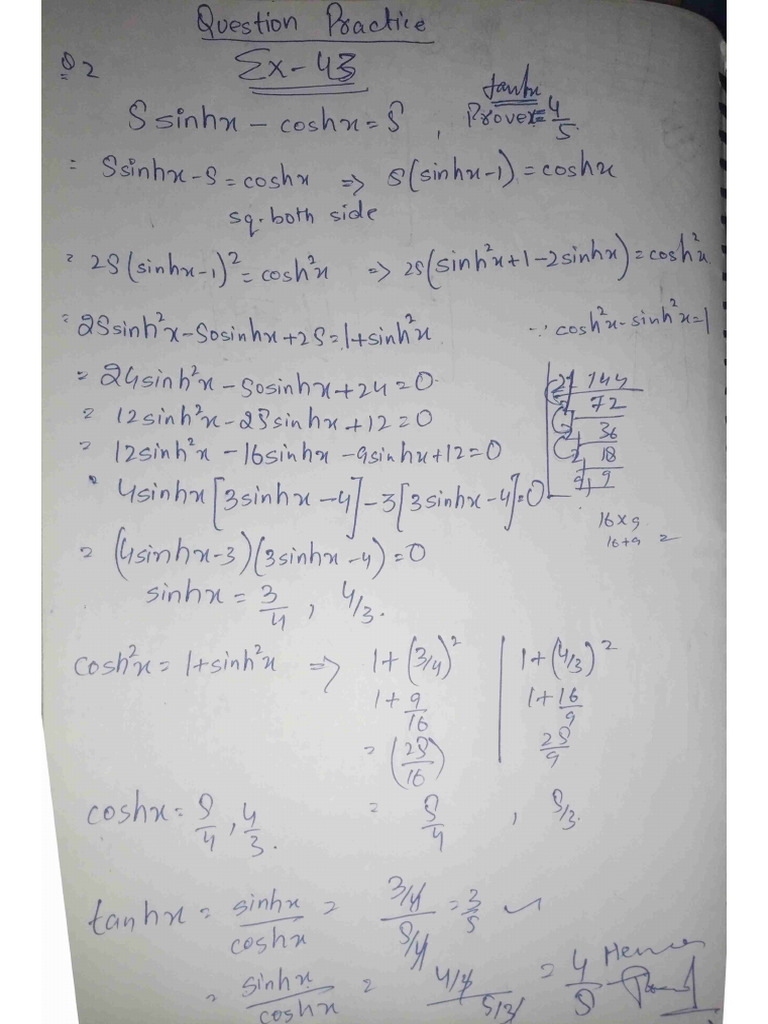 Question Practice
Q2
Ex-43
5 sinhx - coshx = 5 , Prove tanhx = 4/5.
= 5sinhx - 5 = coshx => 5(sinhx-1) = coshx
sq. both side
= 25(sinhx-1)² = cosh²x => 25(sinh²x+1-2sinhx) = cosh²x
= 25sinh²x - 50sinhx + 25 = 1+sinh²x ∵ cosh²x - sinh²x = 1
= 24sinh²x - 50sinhx + 24 = 0
= 12sinh²x - 25sinhx + 12 = 0
= 12sinh²x - 16sinhx - 9sinhx + 12 = 0
= 4sinhx[3sinhx-4] - 3[3sinhx-4] = 0
= (4sinhx-3)(3sinhx-4) = 0
sinhx = 3/4 , 4/3.
2 144
2 72
2 36
2 18
9 9
16×9
16+9 =
cosh²x = 1+sinh²x => 1+(3/4)² | 1+(4/3)²
1+9/16 | 1+16/9
= (25/16) | 25/9
coshx = 5/4, 4/3. = 5/4 , 5/3.
tanhx = sinhx/coshx = 3/4/5/4 = 3/5
= sinhx/coshx = 4/3/5/3 = 4/5 Hence Proved